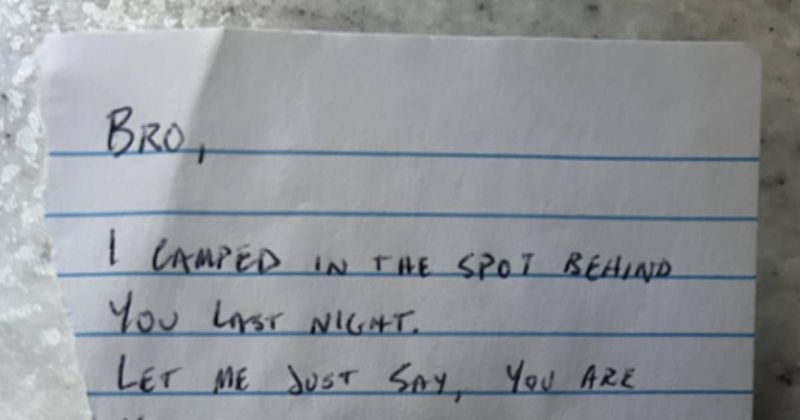 BRO,
I CAMPED IN THE SPOT BEHIND
YOU LAST NIGHT.
LET ME JUST SAY, YOU ARE